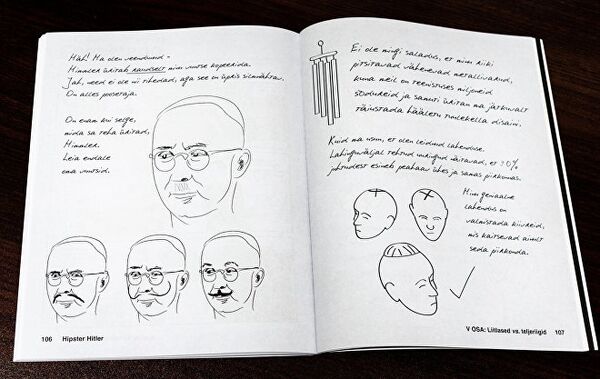 Häh! Ma olen veendunud –
Himmler üritab raudselt minu vuntse kopeerida.
Jah, need ei ole nii tihedad, aga see on üpris silmnähtav.
On alles poseerija.
On enam kui selge,
mida sa teha üritad,
Himmler.
Leia endale
oma vuntsid.
106 Hipster Hitler
Ei ole mingi saladus, et minu riiki
pitsitavad vähenevad metallivarud,
kuna meil on teenistuses miljoneid
sõdureid ja samuti üritan ma jätkuvalt
täiustada Häälen tuulekella disaini.
Kuid ma usun, et olen leidnud lahenduse.
Lahinguväljal tehtud uuringud näitavad, et 90%
juhtudest esineb peahaav ühes ja samas piirkonnas.
Minu geniaalne
lahendus on
valmistada kiivreid,
mis kaitsevad ainult
seda piirkonda.
V OSA: Liitlased vs. teljeriigid 107